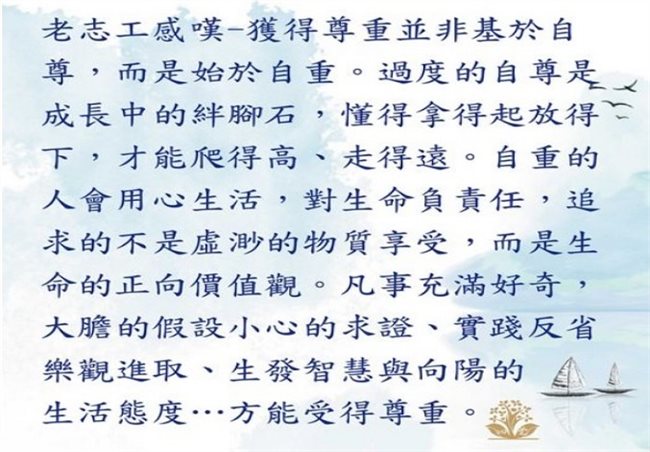 老志工感嘆-獲得尊重並非基於自
尊，而是始於自重。過度的自尊是
成長中的絆腳石，懂得拿得起放得
下，才能爬得高、走得遠。自重的
人會用心生活，對生命負責任，追
求的不是虛渺的物質享受，而是生
命的正向價值觀。凡事充滿好奇，
大膽的假設小心的求證、實踐反省
樂觀進取、生發智慧與向陽的
生活態度…方能受得尊重。